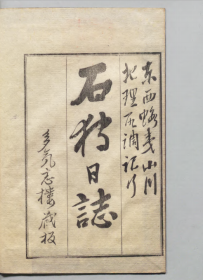 東西蝦夷山川
地理取調紀行
石狩日誌
多氣志樓蔵板